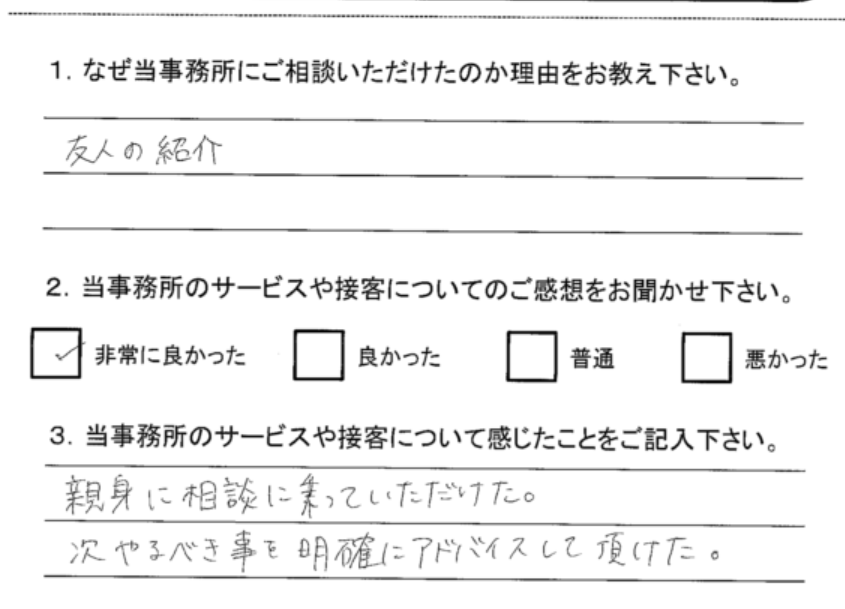 1. なぜ当事務所にご相談いただけたのか理由をお教え下さい。
友人の紹介
2. 当事務所のサービスや接客についてのご感想をお聞かせ下さい。
✓ 非常に良かった 良かった 普通 悪かった
3. 当事務所のサービスや接客について感じたことをご記入下さい。
親身に相談に乗っていただけた。
次やるべき事を明確にアドバイスして頂けた。